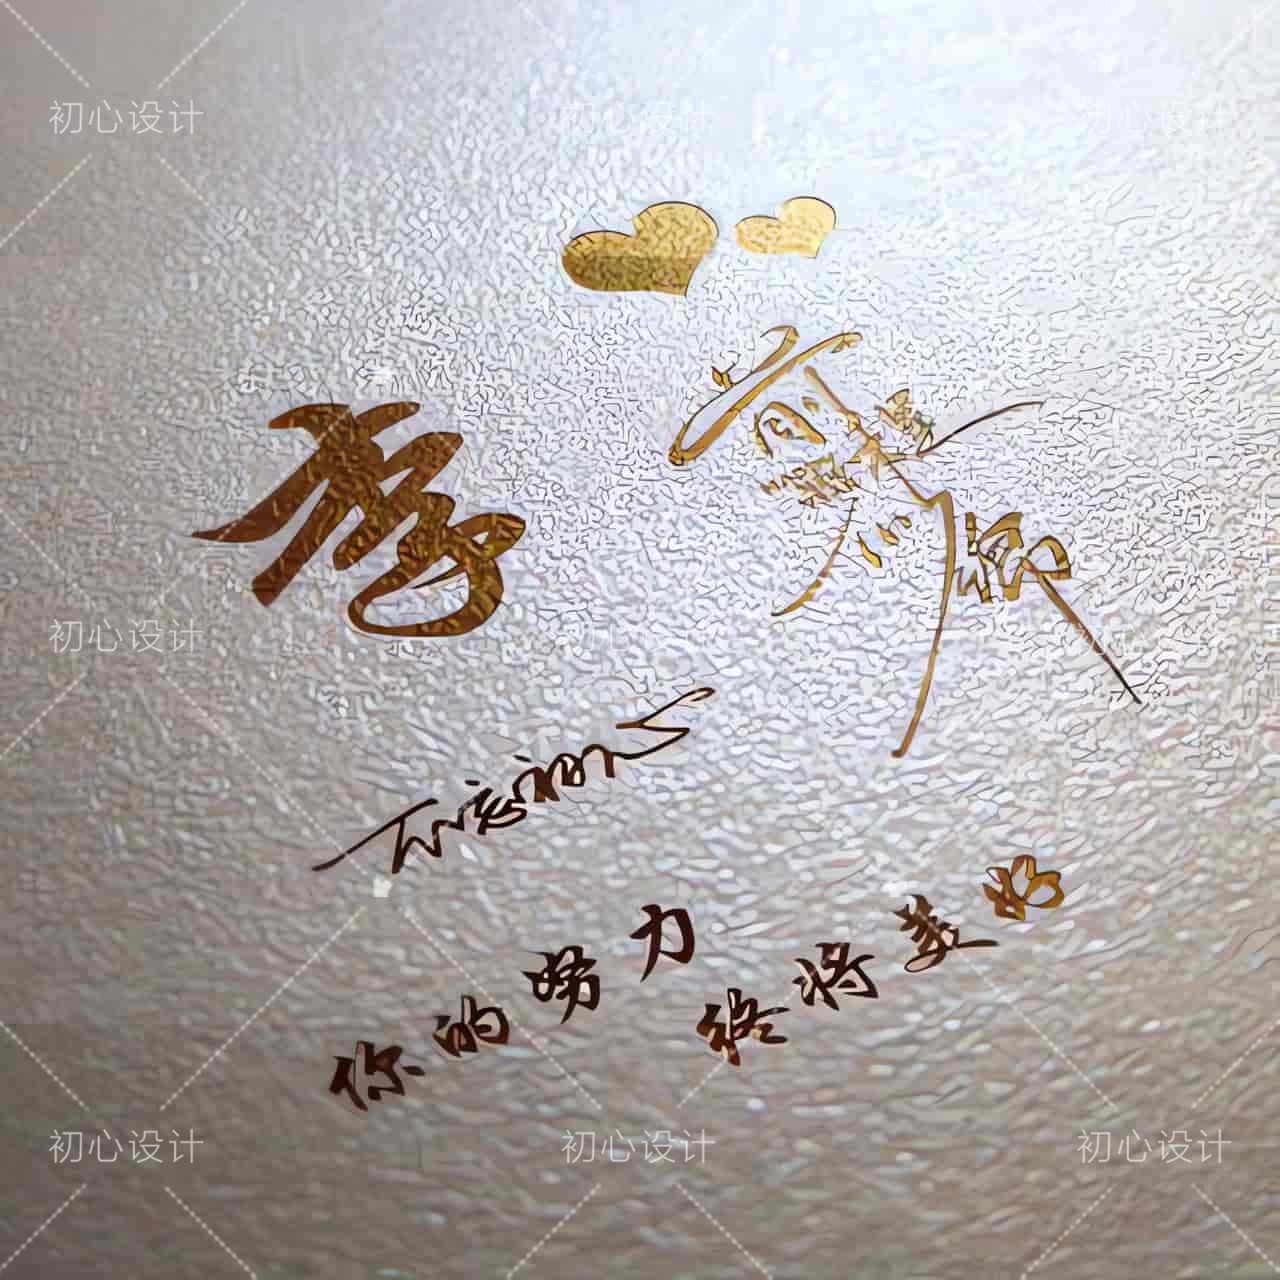 初心设计 初心设计 初心设计
李
初心设计 初心设计 初心
不忘初心
你的努力
终将美好
初心设计 初心设计 初心设计